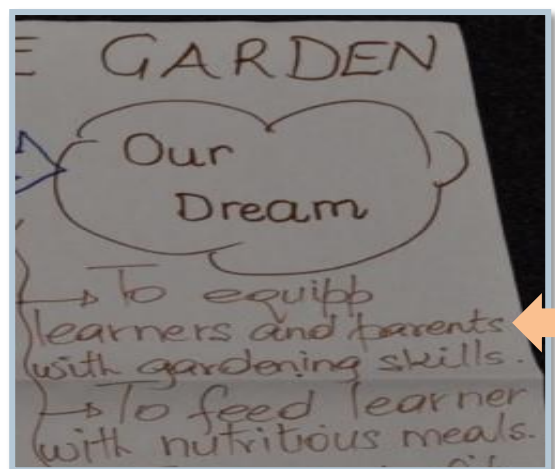 GARDEN
Our
Dream
→ To equipp
learners and parents
with gardening skills.
→ To feed learner
with nutritious meals.